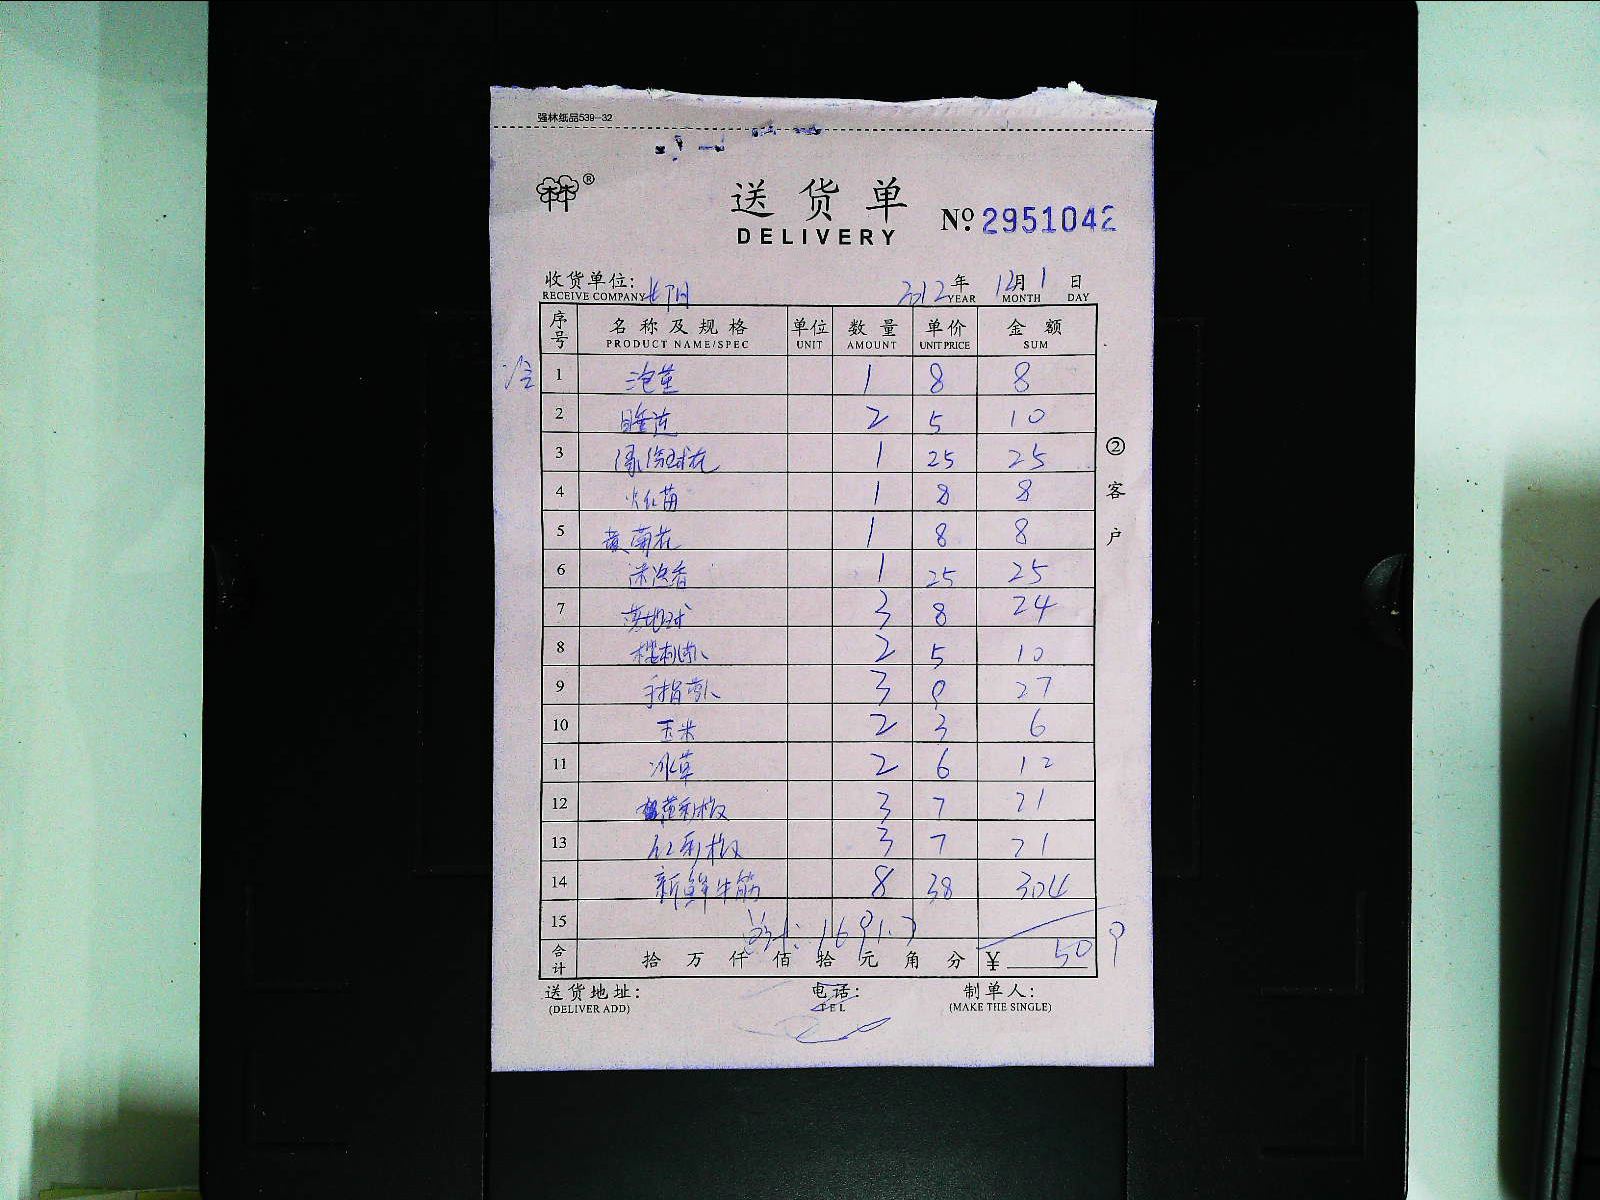 强林纸品539-32
®
送货单
DELIVERY
No. 2951042
收货单位:
RECEIVE COMPANY
2012年 12月1日
YEAR MONTH DAY
序号 名称及规格 单位 数量 单价 金额
PRODUCT NAME/SPEC UNIT AMOUNT UNIT PRICE SUM
1 1 8 8
2 睡莲 2 5 10
3 1 25 25
4 火红苗 1 8 8
5 黄菊花 1 8 8
6 迷迭香 1 25 25
7 3 8 24
8 樱桃 2 5 10
9 手指 3 9 27
10 玉米 2 3 6
11 冰草 2 6 12
12 3 7 21
13 红彩椒 3 7 21
14 新鲜牛筋 8 38 304
15
1691.7
合计 拾万仟佰拾元角分 ¥ 509
送货地址: 电话: 制单人:
(DELIVER ADD) TEL (MAKE THE SINGLE)
②客户